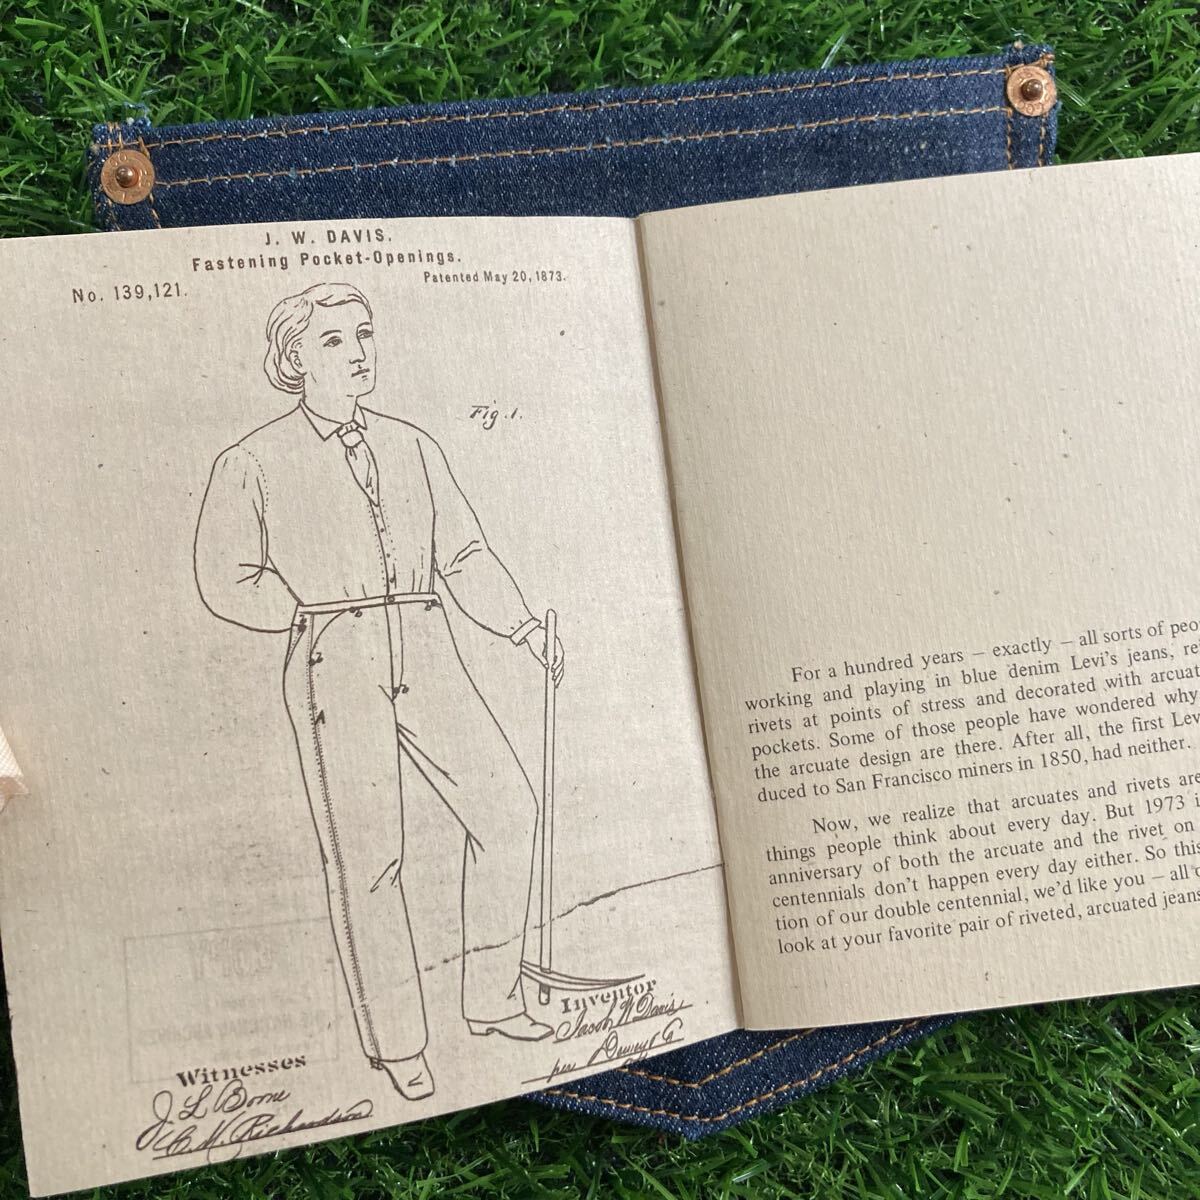 J. W. DAVIS.
Fastening Pocket-Openings.
No. 139,121.
Patented May 20, 1873.
Fig. 1.
Witnesses
J L Boone
C. M. Richardson
Inventor
Jacob W Davis
per Dewey & Co
For a hundred years – exactly – all sorts of
working and playing in blue denim Levi's jeans,
rivets at points of stress and decorated with
pockets. Some of those people have wondered why
the arcuate design are there. After all, the first
duced to San Francisco miners in 1850, had neither.
Now, we realize that arcuates and rivets are
things people think about every day. But 1973
anniversary of both the arcuate and the rivet on
centennials don't happen every day either. So this
tion of our double centennial, we'd like you – all
look at your favorite pair of riveted, arcuated jeans